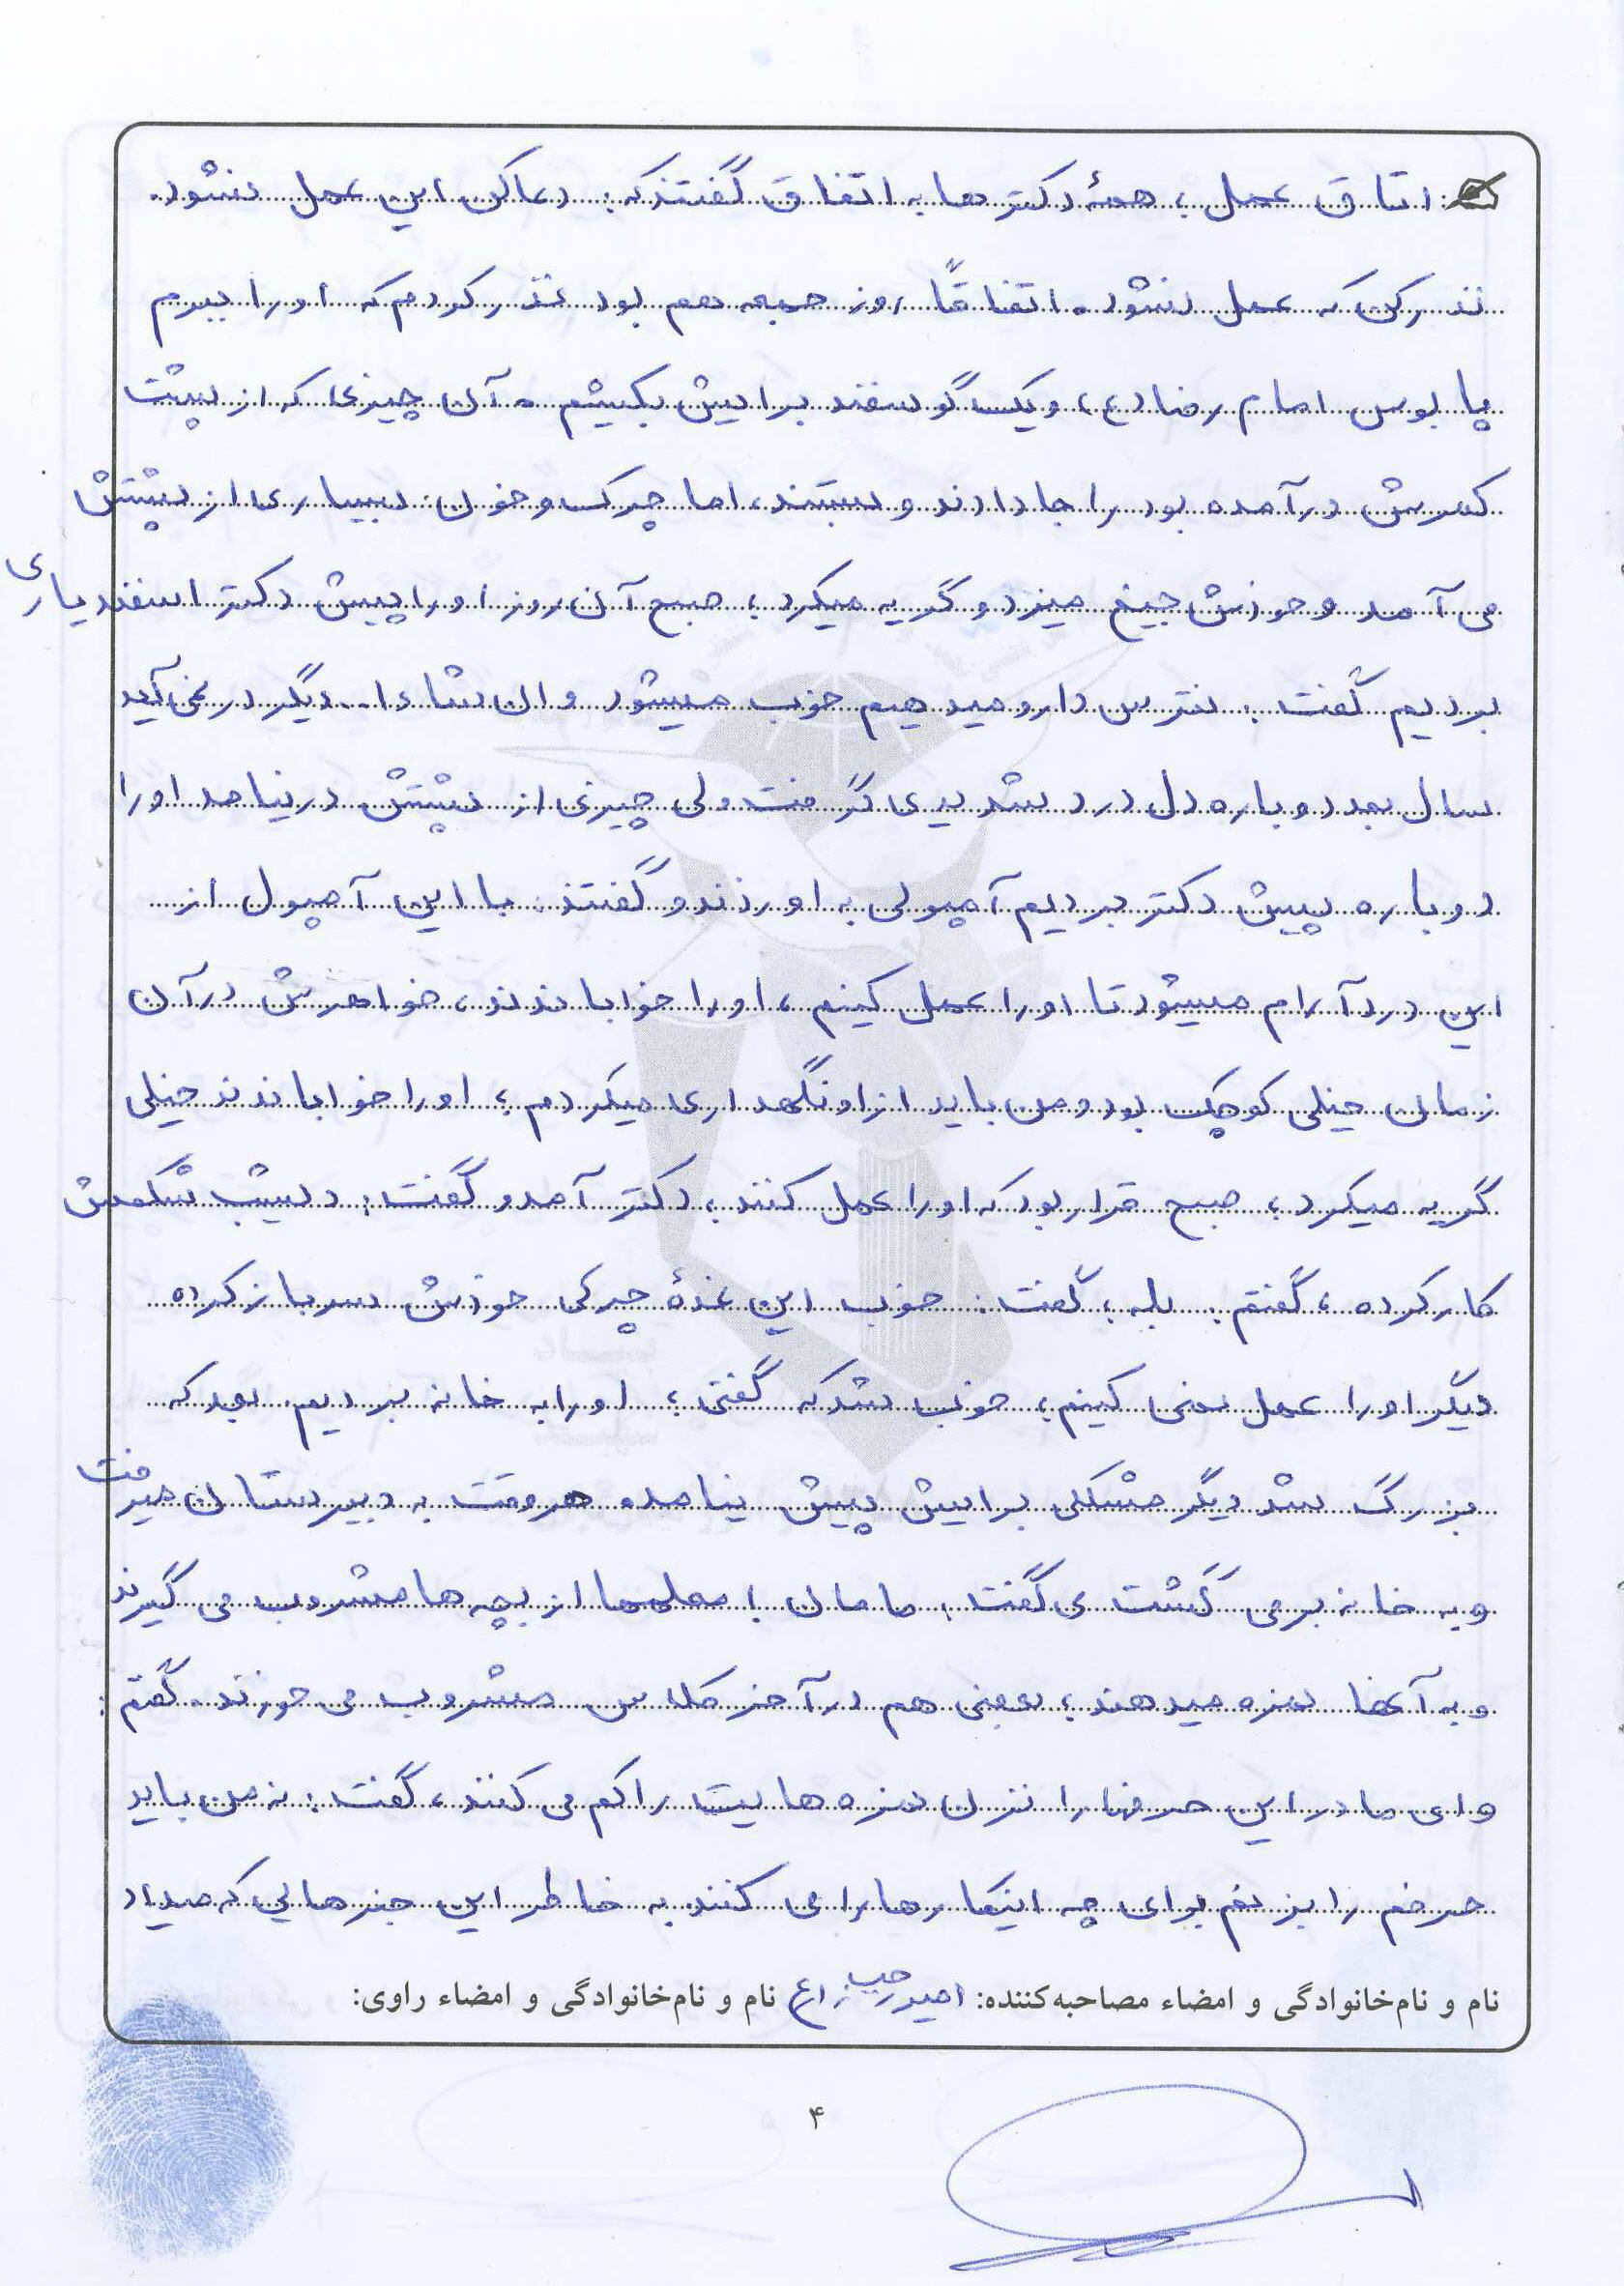 اتاق عمل؛ همهٔ دکترها به اتفاق گفتند که: دعا کن این عمل نشود.
نذر کن که عمل نشود. اتفاقاً روز جمعه هم بود نذر کردم که او را ببرم
پابوس امام رضا (ع)، و یک گوسفند برایش بکشیم. آن چیزی که از پشت
کمرش درآمده بود را جا دادند و بستند، اما چرک و خون بسیاری از پشتش
می آمد و خودش جیغ میزد و گریه میکرد؛ صبح آن روز او را پیش دکتر اسفندیاری
بردیم گفت: نترس دارو میدهیم خوب میشود و ان شاءا... دیگر در نمی آید
سال بعد دوباره دل درد شدیدی گرفت ولی چیزی از پشتش در نیامد او را
دوباره پیش دکتر بردیم آمپولی به او زدند و گفتند: با این آمپول از
این درد آرام میشود تا او را عمل کنیم، او را خواباندند، خواهرش در آن
زمان خیلی کوچک بود و من باید از او نگهداری میکردم؛ او را خواباندند خیلی
گریه میکرد؛ صبح قرار بود که او را عمل کنند؛ دکتر آمد و گفت: دیشب شکمش
کار کرده، گفتم: بله؛ گفت: خوب این غدهٔ چرکی خودش سر باز کرده
دیگر او را عمل نمی کنیم؛ خوب شد که گفتی؛ او را به خانه بردیم. بعد که
بزرگ شد دیگر مشکلی برایش پیش نیامده هر وقت به دبیرستان میرفت
و به خانه بر می گشت ی گفت: مامان! معلمها از بچه ها مشروب می گیرند
و به آنها نمره میدهند؛ بعضی هم در آخر کلاس مشروب می خورند. گفتم:
وای مادر این حرفها را نزن نمره هایت را کم می کنند، گفت: نه من باید
حرفم را بزنم برای چه اینکارها را می کنند به خاطر این خبرهایی که میداد
نام و نام‌خانوادگی و امضاء مصاحبه‌کننده: امیر نام و نام‌خانوادگی و امضاء راوی:
۴